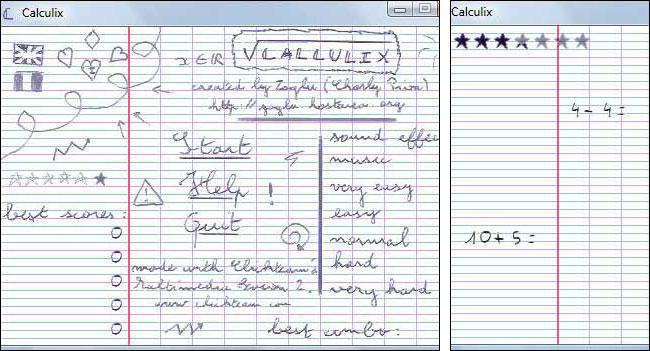 Calculix
x∈R √CALCULIX
created by Zoglu (Charly Piva)
http://zoglu.hostuca.org
Start
Help !
Quit
sound effec
music
very easy
easy
normal
hard
very hard
best scores:
0
0
0
0
0
made with Clickteam's
Multimedia Fusion 2.
www.clickteam.com
best combo:
Calculix
4 - 4 =
10 + 5 =